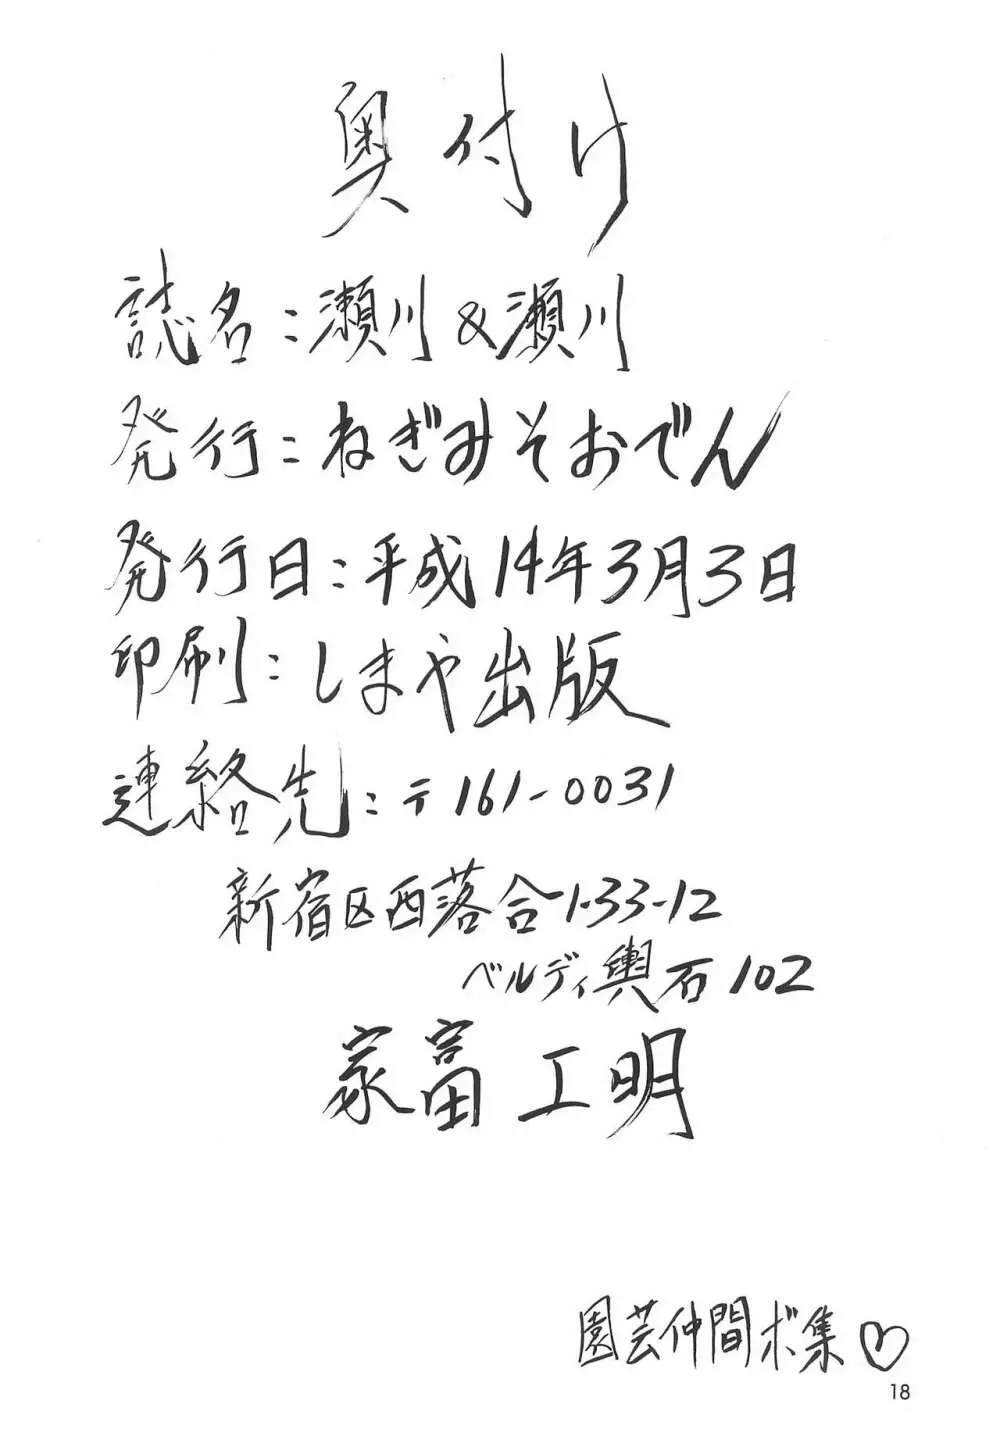 奥付け
誌名：瀬川&瀬川
発行：ねぎみそおでん
発行日：平成14年3月3日
印刷：しまや出版
連絡先：〒161-0031
新宿区西落合1-33-12
ベルディ輿石102
家富工明
園芸仲間ボ集♡
18